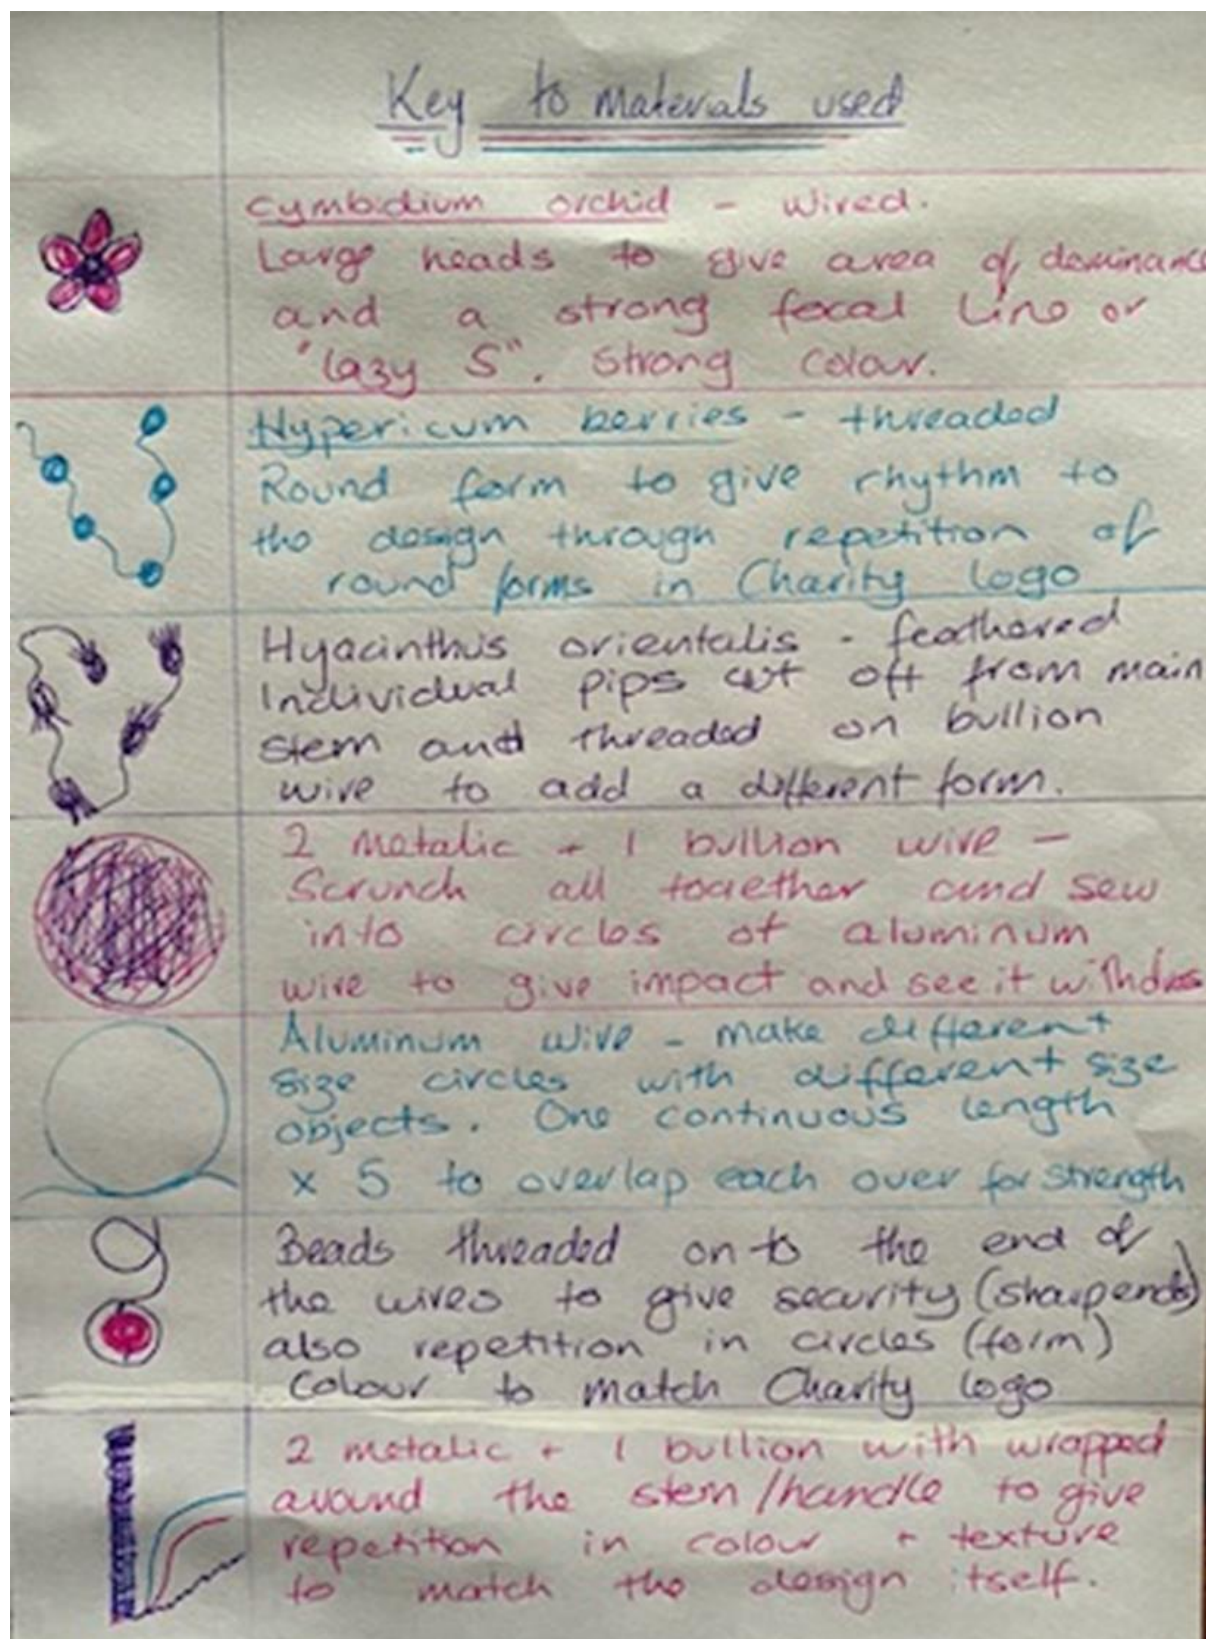 Key to materials used
Cymbidium orchid - wired.
Large heads to give area of dominance
and a strong focal line or
"lazy S". Strong colour.
Hypericum berries - threaded
Round form to give rhythm to
the design through repetition of
round forms in Charity logo
Hyacinthus orientalis - feathered
Individual pips cut off from main
stem and threaded on bullion
wire to add a different form.
2 metalic + 1 bullion wire -
Scrunch all together and sew
into circles of aluminum
wire to give impact and see it
Aluminum wire - make different
size circles with different size
objects. One continuous length
x 5 to overlap each over for strength
Beads threaded on to the end of
the wires to give security (sharp ends)
also repetition in circles (form)
Colour to match Charity logo
2 metalic + 1 bullion with wrapped
around the stem/handle to give
repetition in colour + texture
to match the design itself.